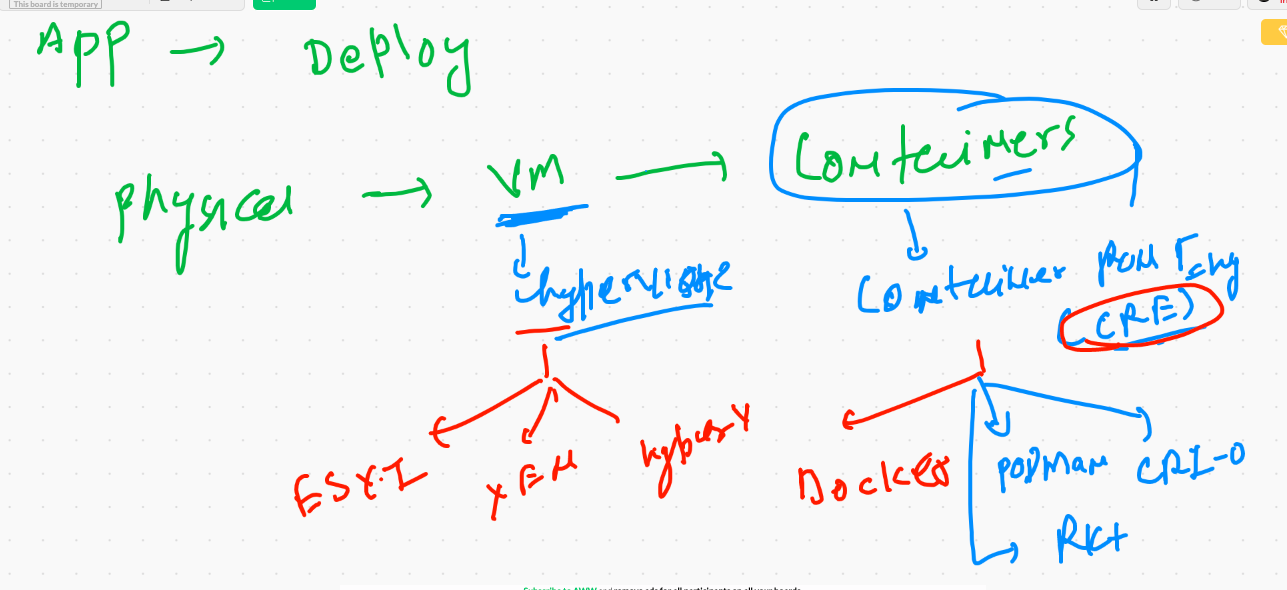 This board is temporary
APP → Deploy
physical → VM → Containers
hypervisor
Container Run Eng
(CRE)
ESX-I XEN hyper-V
Docker PODMAN CRI-O
RKt
Subscribe to AWW and remove ads for all participants on all your boards